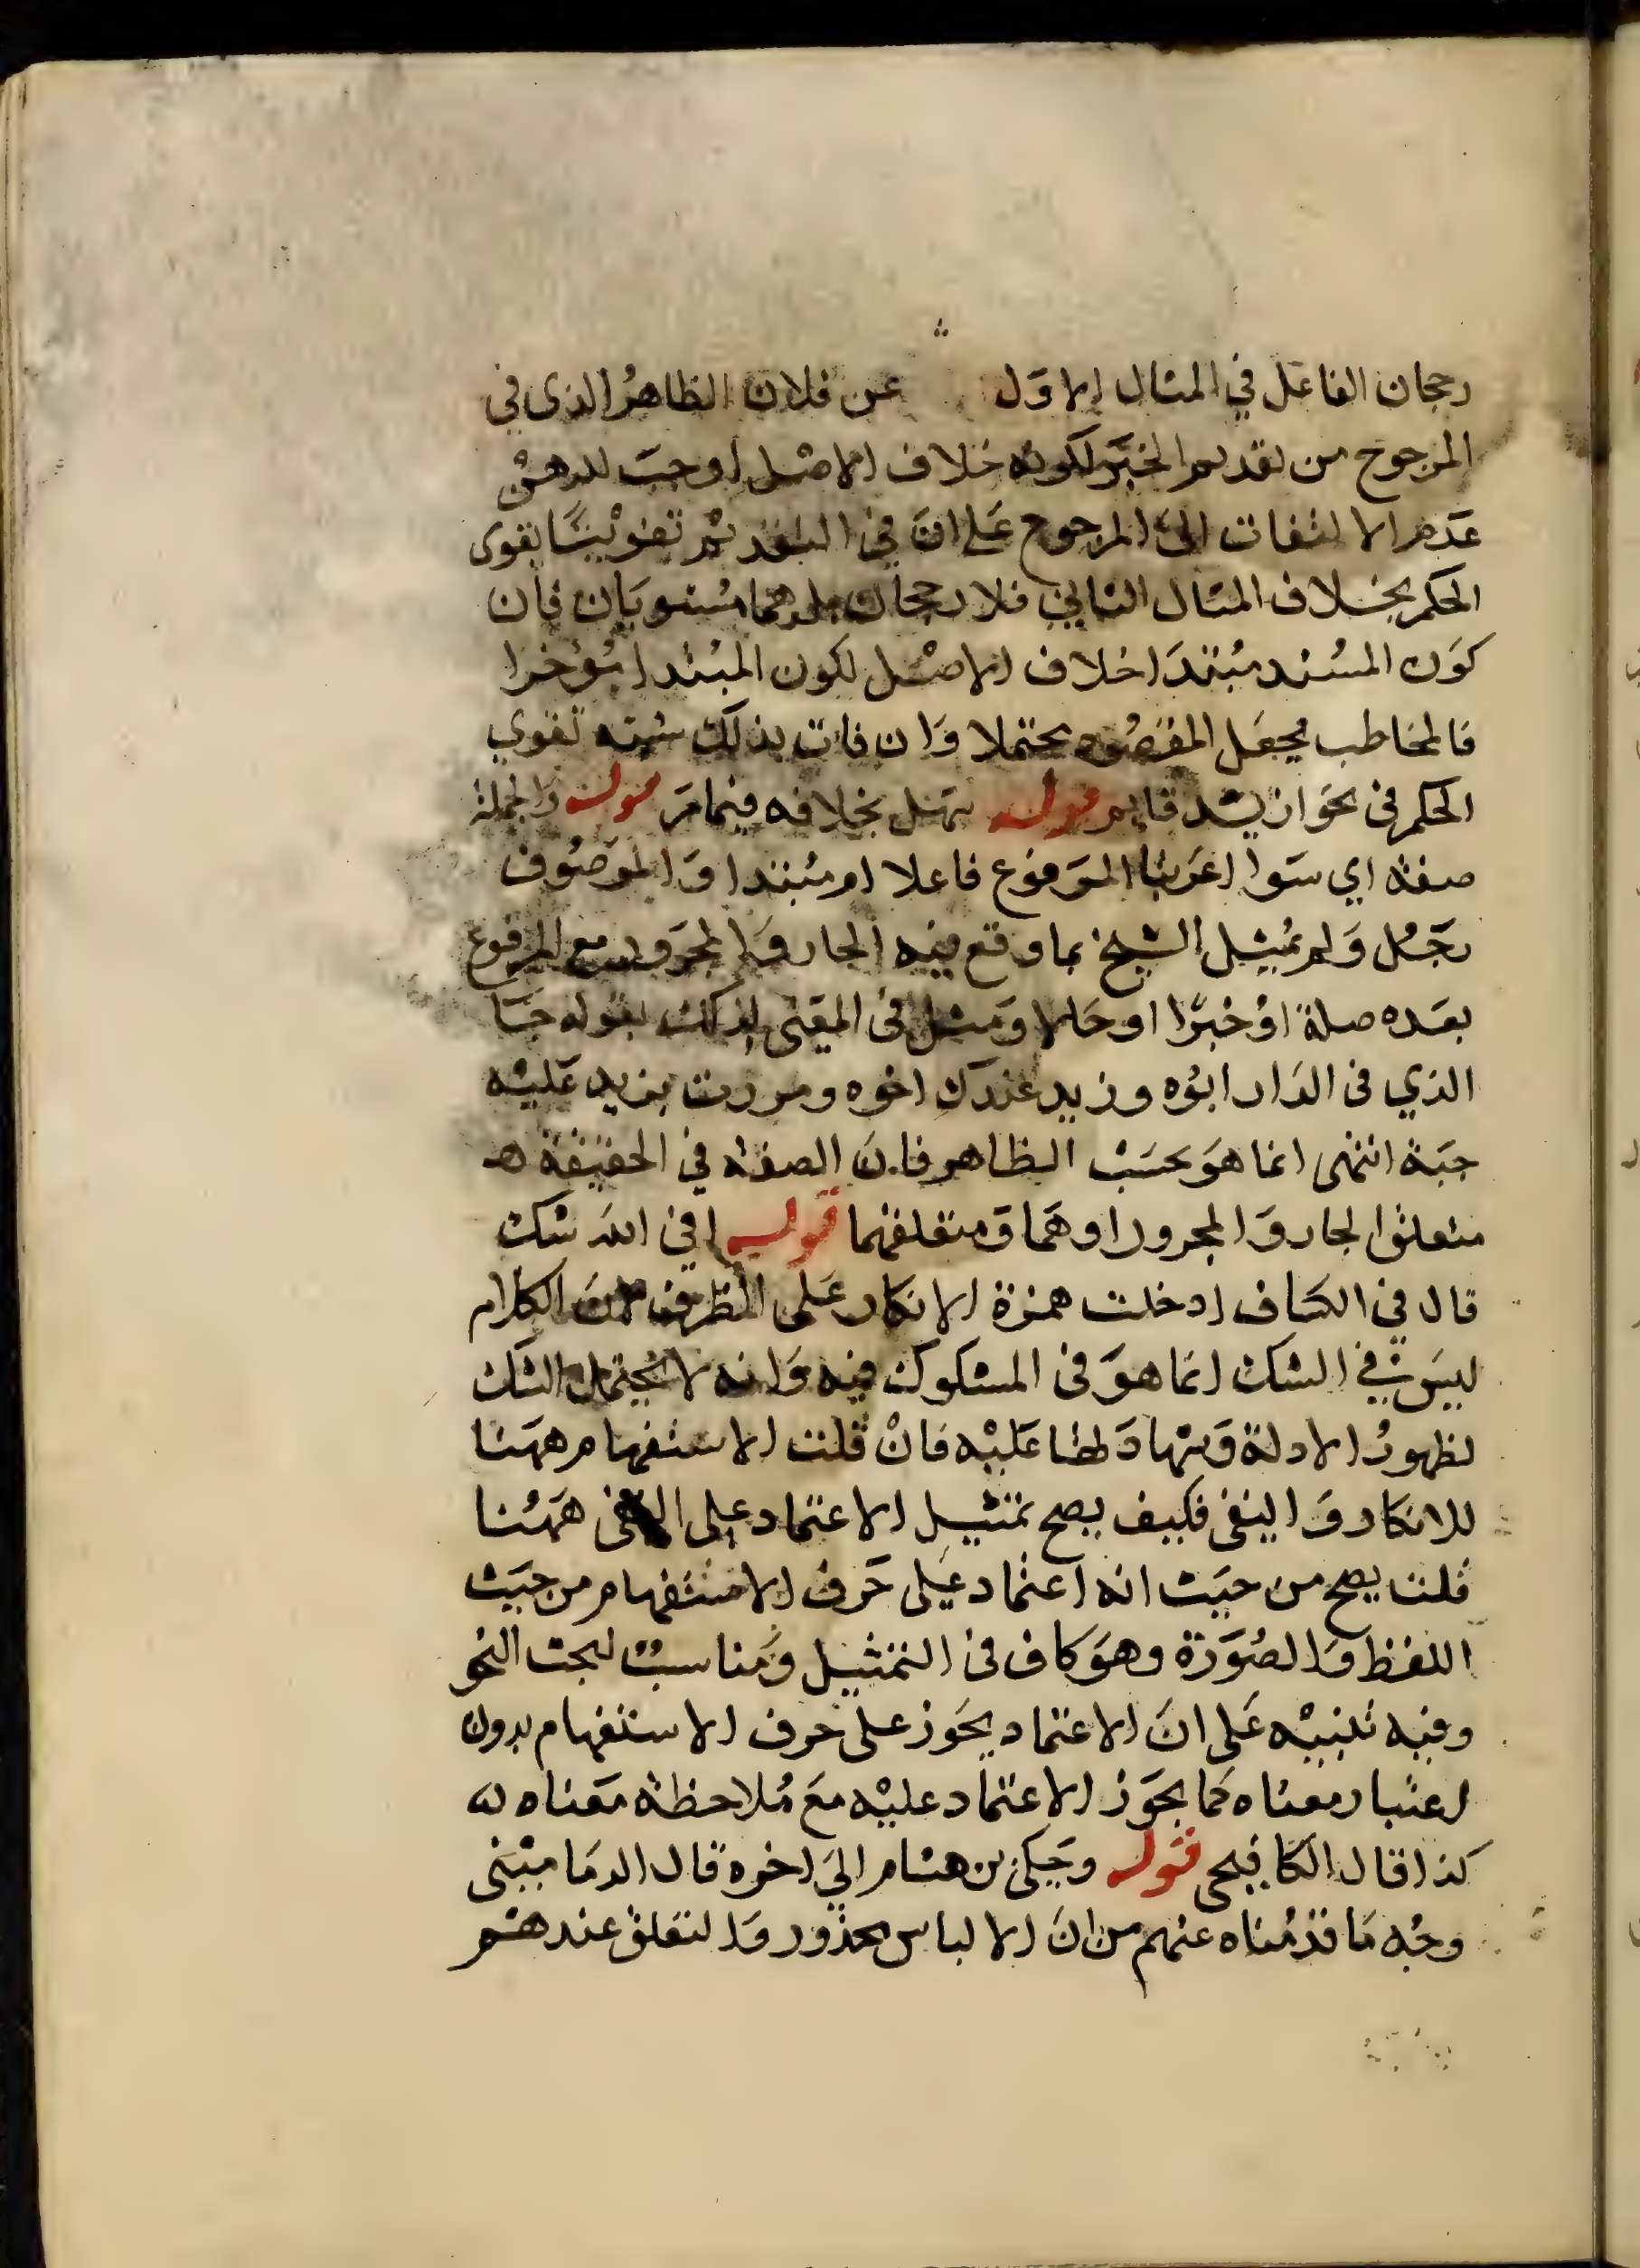 رجحان الفاعل في المثال الاول عن فلان الظاهر الذي في
المرجوح من تقديم الخبر لكونه خلاف الاصل اوجب
عدم الالتفات الى المرجوح على ان في التقديم تقوى
الحكم بخلاف المثال الثاني فلا رجحان مستويان فان
كون المسند مبتدا خلاف الاصل لكون المبتدا مؤخرا
فالمخاطب يجعل محتملا وان فات بذلك تقوي
الحكم في نحو قايم قوله بخلافه فيما مر قوله والجملة
صفة اي سوا اعربنا المرفوع فاعلا ام مبتدا والموصوف
رجل ولم يمثل الشيخ بما وقع فيه الجار والمجرور مع المرفوع
بعده صلة او خبرا او حالا ومثل في المغني لذلك بقوله جا
الذي في الدار ابوه وزيد عندك اخوه ومررت بزيد عليه
جبة انتهى انما هو بحسب الظاهر فان الصفة في الحقيقة
متعلق الجار والمجرور او هما ومتعلقهما قوله افي الله شك
قال في الكشاف ادخلت همزة الانكار على الظرف لان الكلام
ليس في الشك انما هو في المشكوك فيه وانه لا يحتمل الشك
لظهور الادلة وشهادتها عليه فان قلت الاستفهام ههنا
للانكار والنفي فكيف يصح تمثيل الاعتماد على ههنا
قلت يصح من حيث انه اعتماد على حرف الاستفهام من حيث
اللفظ والصورة وهو كاف في التمثيل ومناسب لبحث النحو
وفيه تنبيه على ان الاعتماد يجوز على حرف الاستفهام بدون
اعتبار معناه كما يجوز الاعتماد عليه مع ملاحظة معناه
كذا قال الكافيجي قوله وحكى بن هشام الى اخره قال الدماميني
وجه ما قدمناه عنهم من ان الالباس محذور والتعلق عندهم